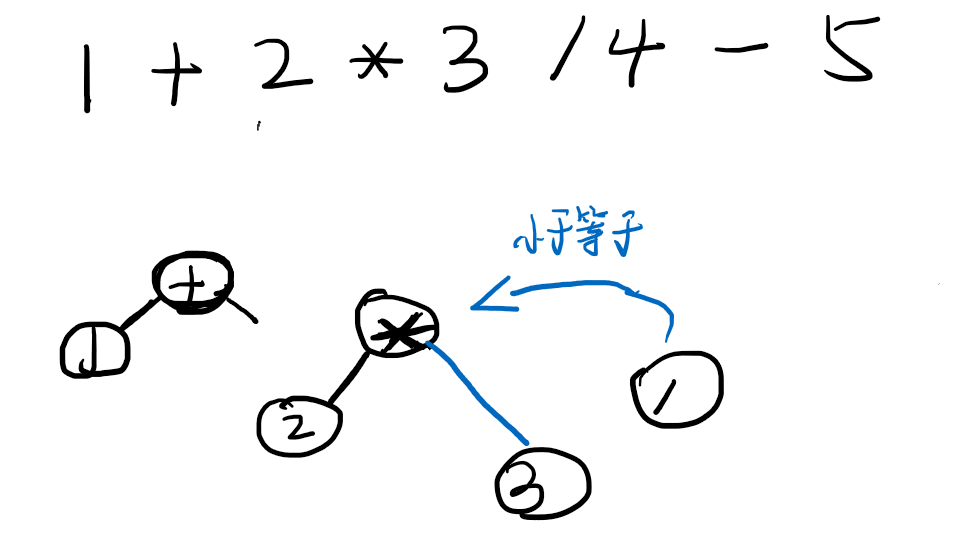 1 + 2 * 3 / 4 - 5
小于等于
+
1
*
/
2
3